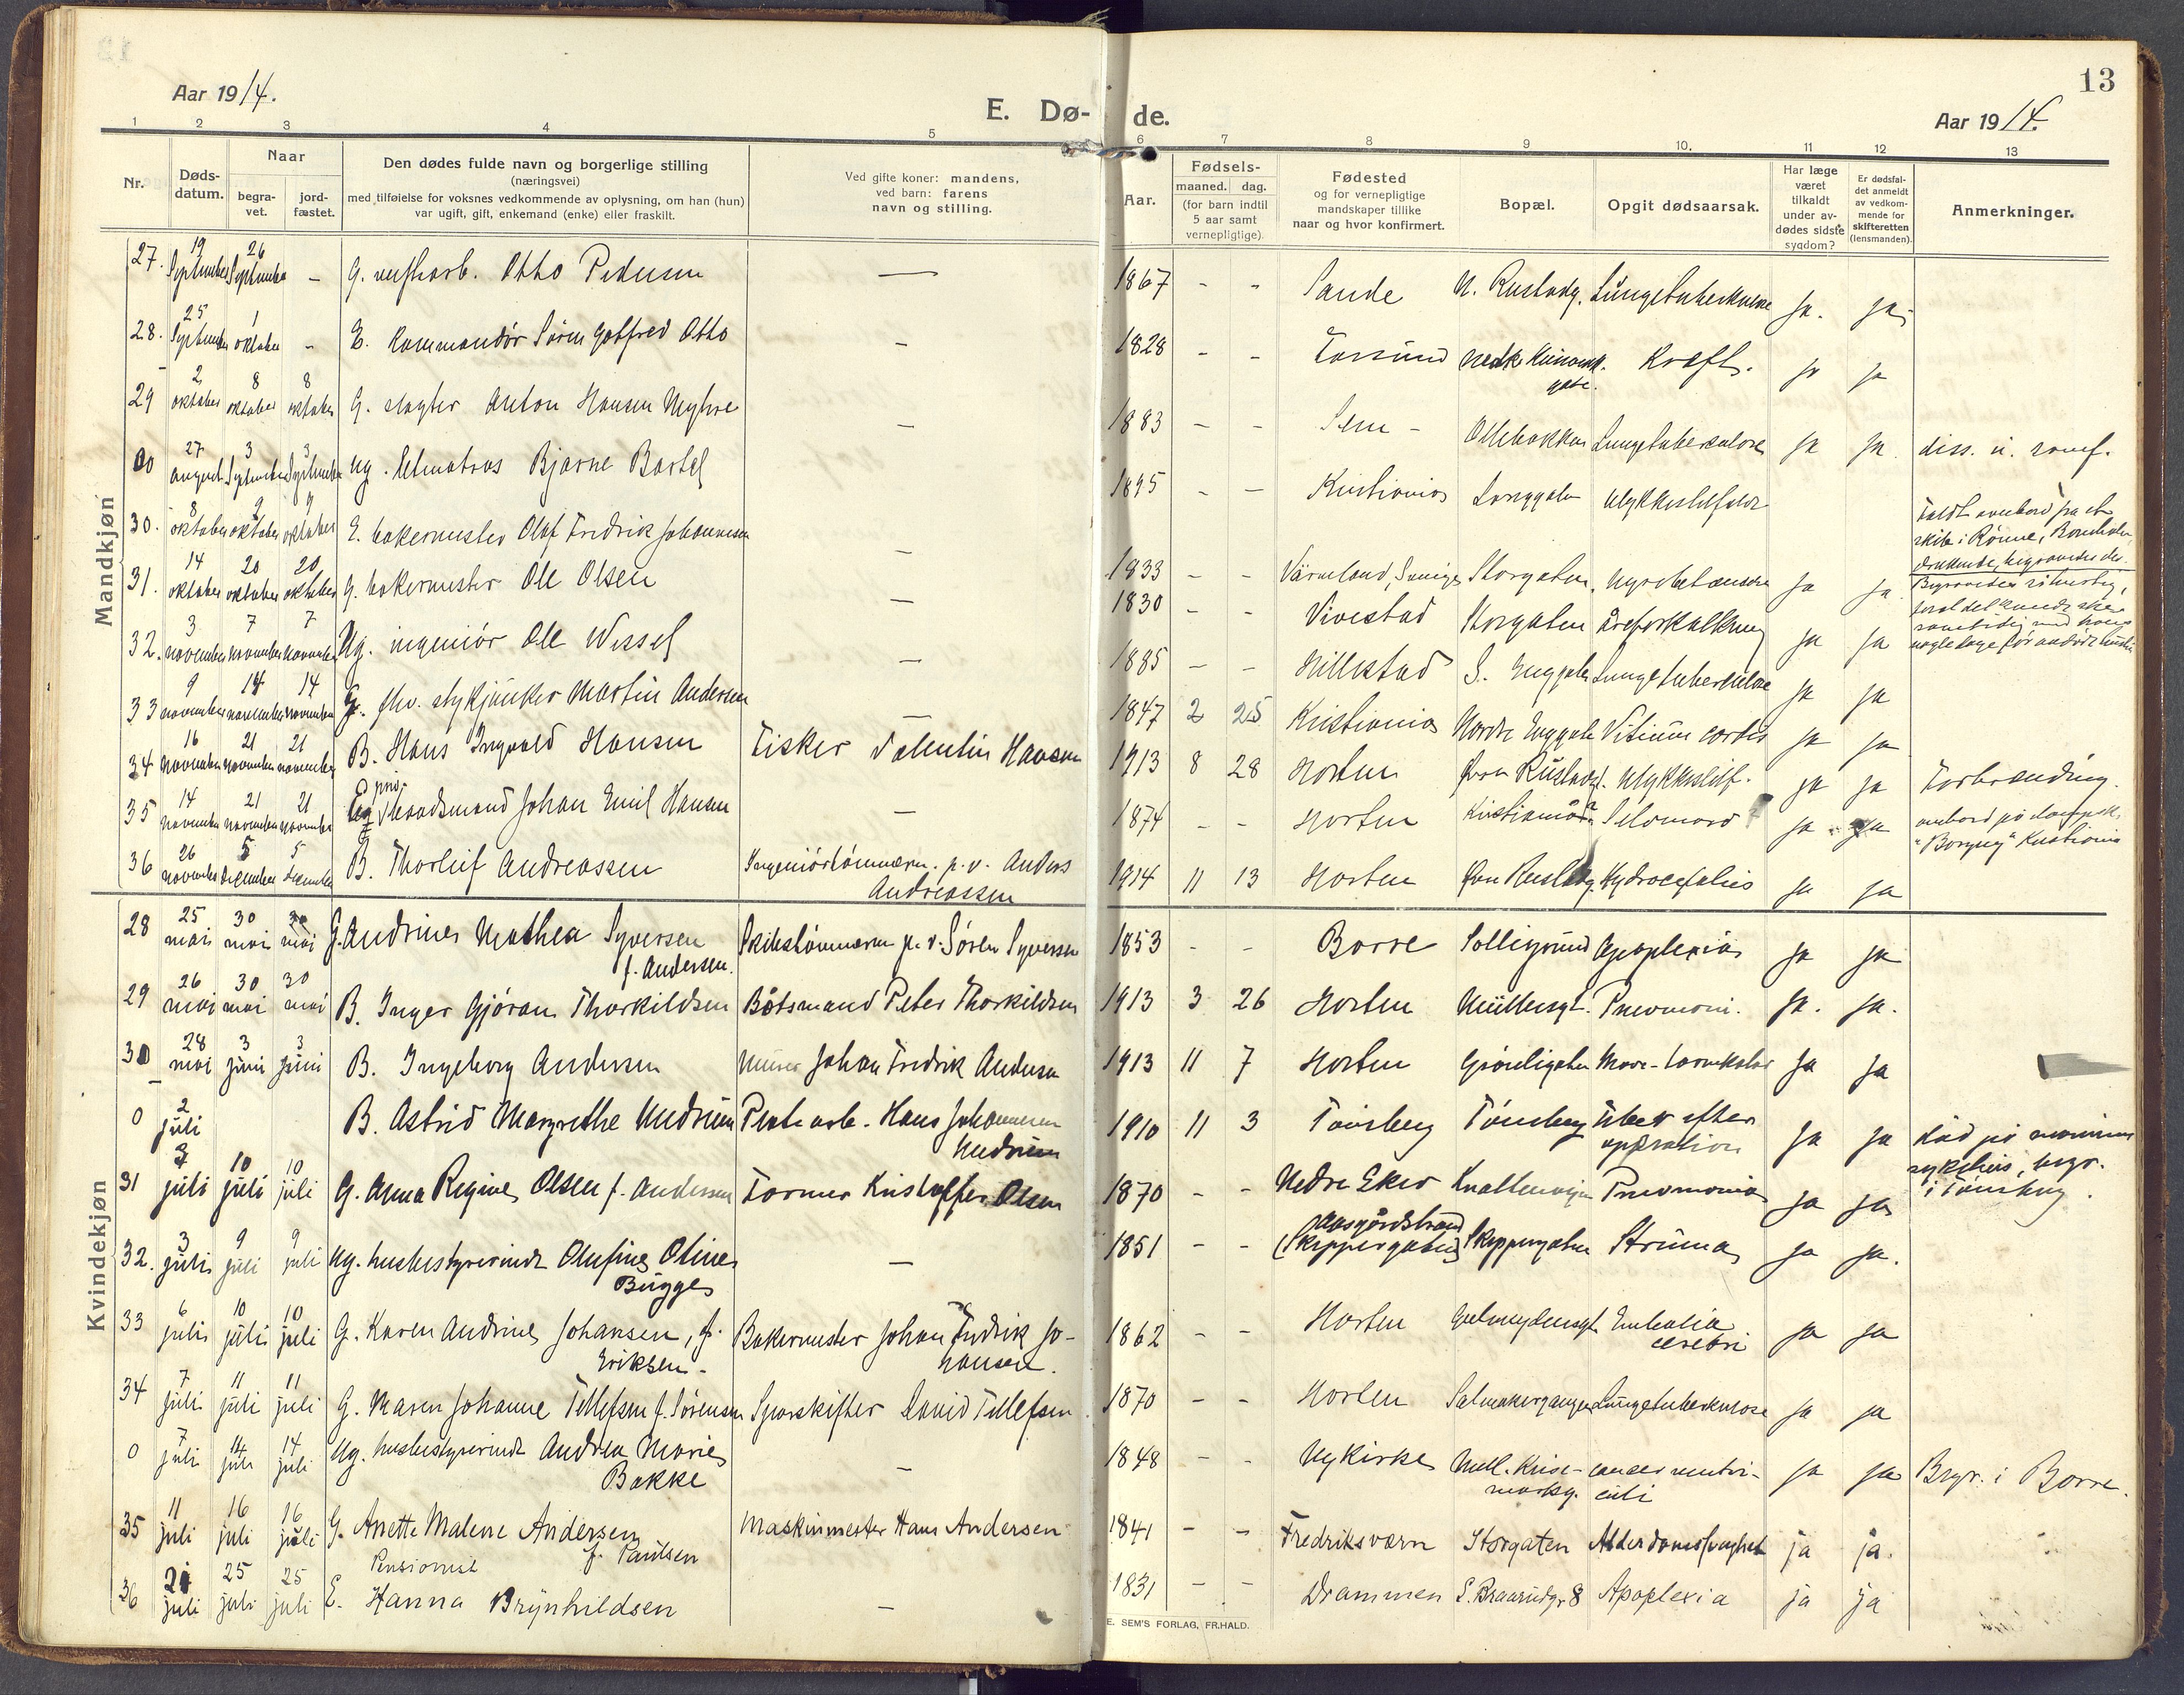 Aar 1914.
E. Dø-
de.
Aar 1914.
13
1 2 3 4 5 6 7 8 9 10. 11 12 13
Nr.
Døds-
datum.
Naar
begra-
vet.
jord-
fæstet.
Den dødes fulde navn og borgerlige stilling
(næringsvei)
med tilføielse for voksnes vedkommende av oplysning, om han (hun)
var ugift, gift, enkemand (enke) eller fraskilt.
Ved gifte koner: mandens,
ved barn: farens
navn og stilling.
Aar.
Fødsels-
maaned. dag.
(for barn indtil
5 aar samt
vernepligtige).
Fødested
og for vernepligtige
mandskaper tillike
naar og hvor konfirmert.
Bopæl.
Opgit dødsaarsak.
Har læge
været
tilkaldt
under av-
dødes sidste
sygdom?
Er dødsfal-
det anmeldt
av vedkom-
mende for
skifteretten
(lensmanden).
Anmerkninger.
Mandkjøn
27. 19 September 26 September - G. verftsarb. Otto Pedersen — 1867 - - Sande N. Rustadg. Lungetuberkulose Ja. ja
28. 25 September 1 oktober - E. Kommandør Søren Gotfred Otto — 1828 - - Kræft. ja ja
29 2 oktober 8 oktober 8 oktober G. slagter Anton Hansen Myhre — 1883 - - Sem - Ollebakken Lungetuberkulose ja ja. diss. u. samf.
27 august 3 September 3 September Ug. letmatros Bjarne Bartel 1895 - - Kristiania Langgaten Ulykkestilfælde
Faldt overbord fra et
skib i Rønne, Bornholm,
druknede, begravedes der.
30. 8 oktober 9 oktober 9 oktober E. bakermester Olaf Fredrik Johannesen — 1833 - - Värmland, Sverige Storgaten. Nyrebetændelse ja ja
31. 14 oktober 20 oktober 20 oktober G. bakermester Ole Olsen — 1830 - - Vivestad Storgaten Åreforkalkning ja ja
32. 3 november 7 november 7 november Ug. ingeniør Ole Wessel — 1885 - - Hillestad S. Enggate Lungetuberkulose ja ja
33 9 november 14 november 14 november G. fhv. stykjunker Martin Andersen — 1847 2 25 Kristiania Nordre Enggate Vitium cordis ja ja
34 16 november 21 november 21 november B. Hans Ingvald Hansen Fisker Valentin Hansen 1913 8 28 Horten Øvre Rustadg. Ulykkestilf. ja ja Forbrænding.
35 14 november 21 november 21 november Ug. Johan Emil Hansen — 1874 - - Horten Kristiania? Selvmord ja ja
ombord på dampsk.
"Borgny" Kristiania
36 26 november 5 december 5 december B. Thorleif Andreassen Ingeniørtømmerm. p.v. Anders
Andreassen
1914 11 13 Horten Øvre Rustadg. Hydrocefalus ja ja
Kvindekjøn
28 25 mai 30 mai 30 mai G. Andrine Mathea Syversen
f. Andersen.
Skibstømmerm p.v. Søren Syversen 1853 - - Borre Solligrund Apoplexia ja ja
29 26 mai 30 mai 30 mai B. Inger Gjøran Thorkildsen Båtsmand Peter Thorkildsen 1913 3 26 Horten Müllersgt. Pneumoni. ja. ja.
30 28 mai 3 juni 3 juni B. Ingeborg Andersen Murer Johan Fredrik Andersen 1913 11 7 Horten Grønligaten Mave-tarmkatar ja ja
0 2 juli B. Astrid Margrethe Undrum Hans Johannesen
Undrum
1910 11 3 Tønsberg Tønsberg efter
operation
ja ja
31 7 juli 10 juli 10 juli G. Anna Regine Olsen f. Andersen Former Kristoffer Olsen 1870 - - Nedre Eker Pneumonia ja ja
i Tønsberg.
32. 3 juli 9 juli 9 juli Ug. husbestyrerinde Olufine Oline
Bugge
— 1851 - - Aasgårdstrand
(Skippergaten) Skippergaten Struma ja ja.
33 6 juli 10 juli 10 juli G. Karen Andrine Johansen, f.
Eriksen-
Bakermester Johan Fredrik Jo-
hansen.
1862 - - Horten Embolia
cerebri
ja ja
34 7 juli 11 juli 11 juli G. Maren Johanne Tellefsen f. Sørensen Sporskifter David Tellefsen 1870 - - Horten Salmakergangen Lungetuberkulose ja ja
0 7 juli 14 juli 14 juli Ug. husbestyrerinde Andrea Marie
Bakke
— 1848 - - Nykirke cancer ventri-
culi
ja ja Begr. i Borre.
35 11 juli 16 juli 16 juli G. Anette Malene Andersen
f. Paulsen
Maskinmester Hans Andersen 1841 - - Fredriksværn Storgaten Alderdomssvaghet ja ja.
36 21 juli 25 juli 25 juli Pensionist
E. Hanna Brynhildsen — 1831 - - Drammen S. Braarudg. 8 Apoplexia ja ja
E. SEM'S FORLAG, FR.HALD.